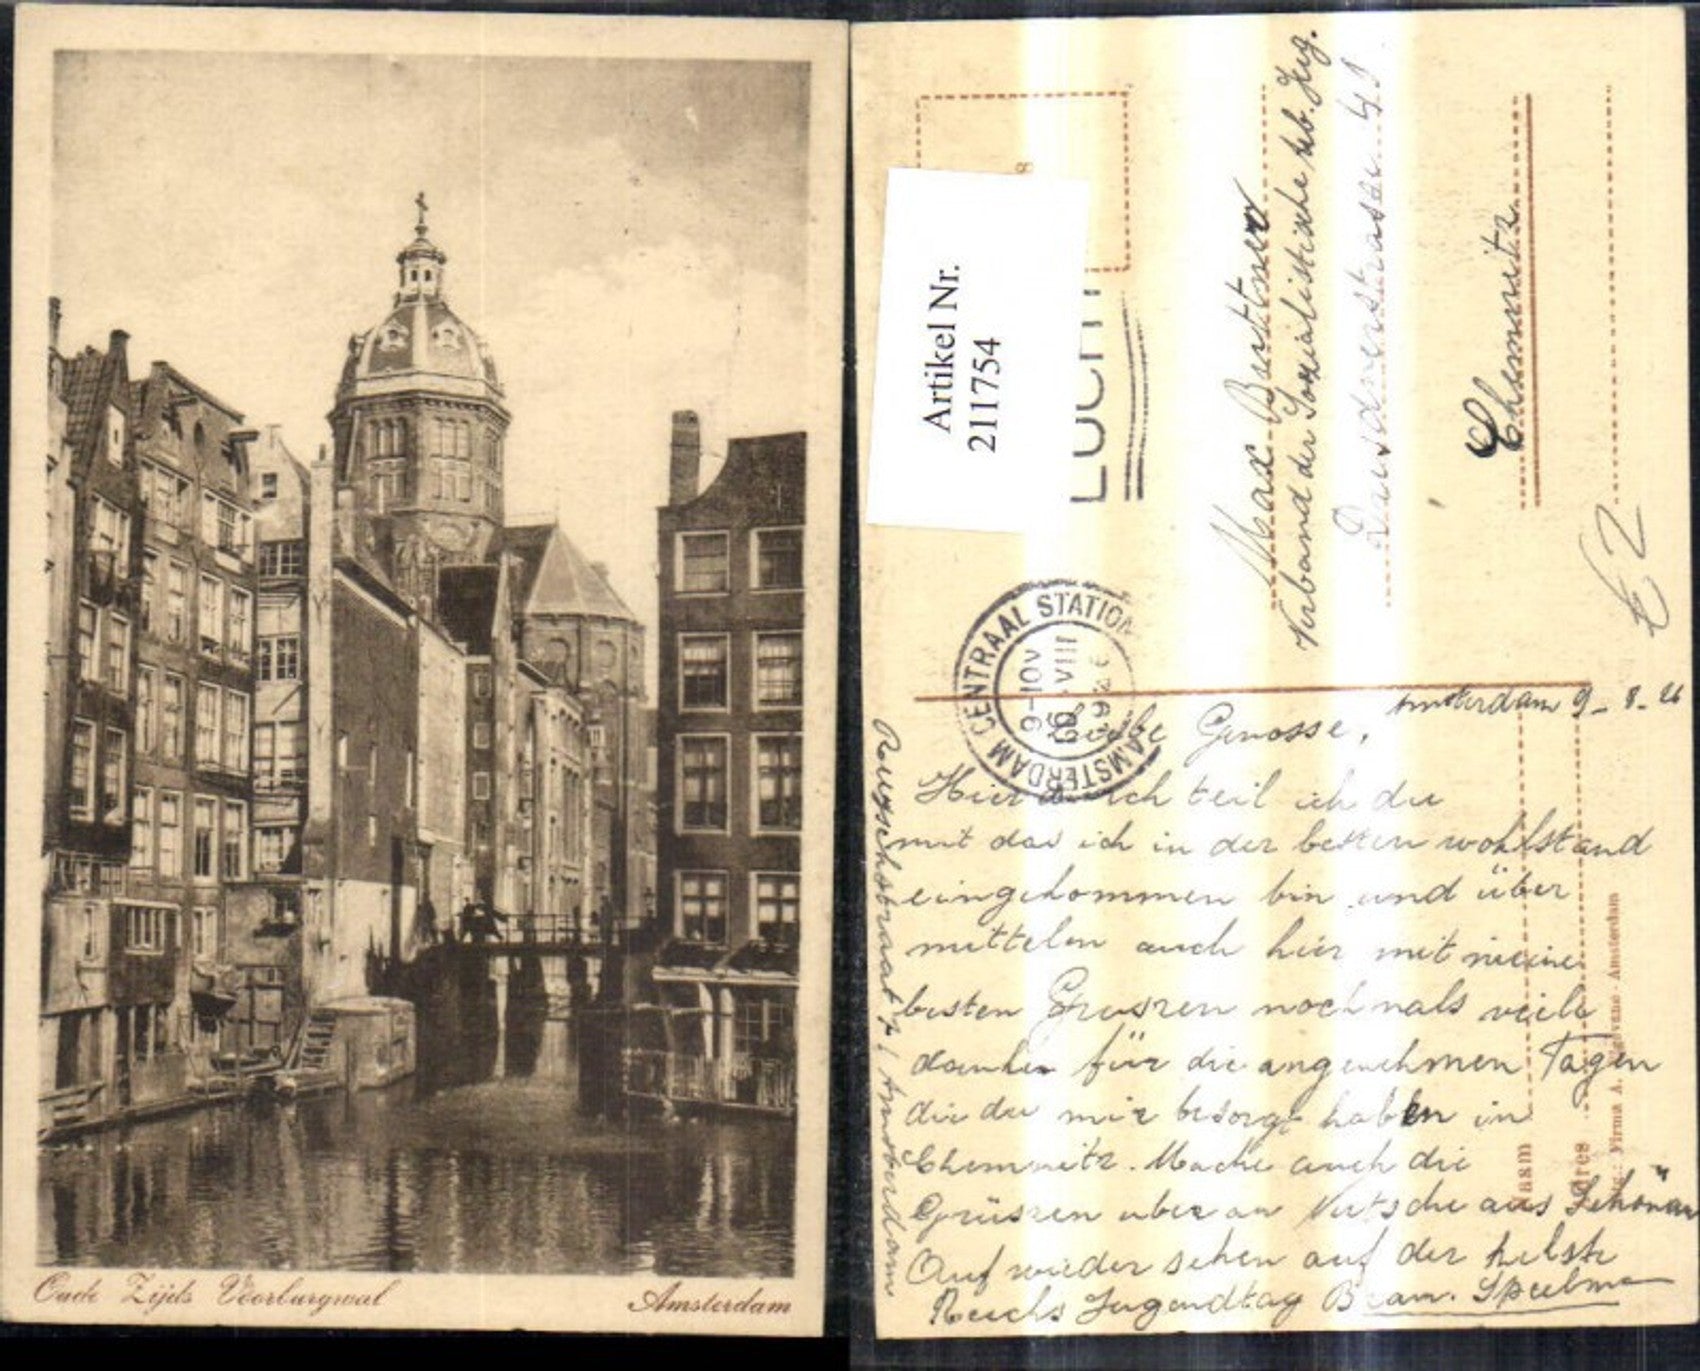 Oude Zijds Voorburgwal
Amsterdam
Artikel Nr.
211754
LUCHT
AMSTERDAM CENTRAAL STATION
9-10V
VIII
AMSTERDAM
Max Büttner
Verband der Sozialistische
Dresdnerstrasse 41
Chemnitz
Amsterdam 9-8-26
Liebe Genosse,
Hier durch teil ich du
mit das ich in der besten wohlstand
eingekommen bin und über
mittelen auch hier mit meine
besten Grussen nochmals viele
danken für die angenehmen Tagen
die du mir besorgt haben in
Chemnitz. Mache auch die
Grüssen uber an aus Schönau
Auf wieder sehen auf der
Reichs Jugendtag Bram. Speelman
Ruyschstraat 7 Amsterdam
Naam
Adres
Firma A. Amsterdam